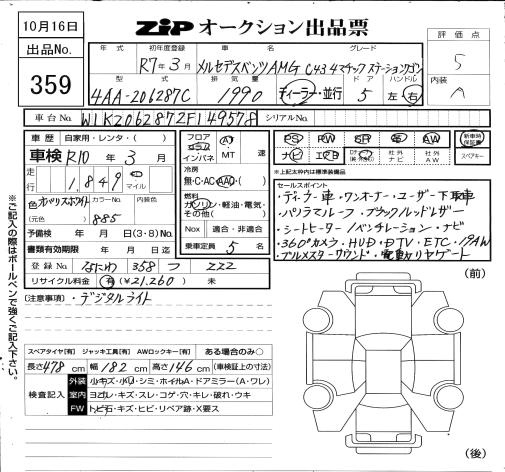 10月16日
出品No.
359
ZiP オークション出品票
評価点
5
内装
A
年式 初年度登録 車名 グレード
R7年3月 メルセデスベンツAMG C43 4マチック ステーションワゴン
型式 排気量 ドア ハンドル
4AA-206287C 1990 ディーラー・並行 5 左・右
車台No. W1K2062872F149578 シリアルNo.
車歴 自家用・レンタ・( )
車検 R10年3月
走行 1,849 km マイル
色 オパリスホワイト カラーNo. 内装色
(元色) 885
予備検 年 月 日(3・8)No.
書類有効期限 年 月 日迄
登録No. なにわ 358 つ 222
リサイクル料金 有(¥21,260) 未
フロア コラム インパネ AT MT 速
冷房
無・C・AC・AAC・( )
燃料
ガソリン・軽油・電気・その他( )
Nox 適合・非適合
乗車定員 5 名
PS PW SR 革 AW 新車時保証書
ナビ エアB 社外ナビ 社外AW スペアキー
*上記太枠内は標準装備品
セールスポイント
・ディーラー車・ワンオーナー・ユーザー下取車
・パノラマルーフ・ブラック/レッドレザー
・シートヒーター/ベンチレーション・ナビ
・360°カメラ・HUD・DTV・ETC・19AW
・ブルメスターサウンド・電動リヤゲート
(注意事項)・デジタルライト
(前)
スペアタイヤ[有] ジャッキ工具[有] AWロックキー[有] ある場合のみ○
長さ478cm 幅182cm 高さ146cm (車検証上の寸法)
検査記入
外装 小キズ・小凹・シミ・ホイルA・ドアミラー(A・ワレ)
室内 ヨゴレ・キズ・スレ・コゲ・穴・キレ・破れ・ウチ
FW トビ石・キズ・ヒビ・リペア跡・X要ス
(後)
※ご記入の際はボールペンで強くご記入下さい。